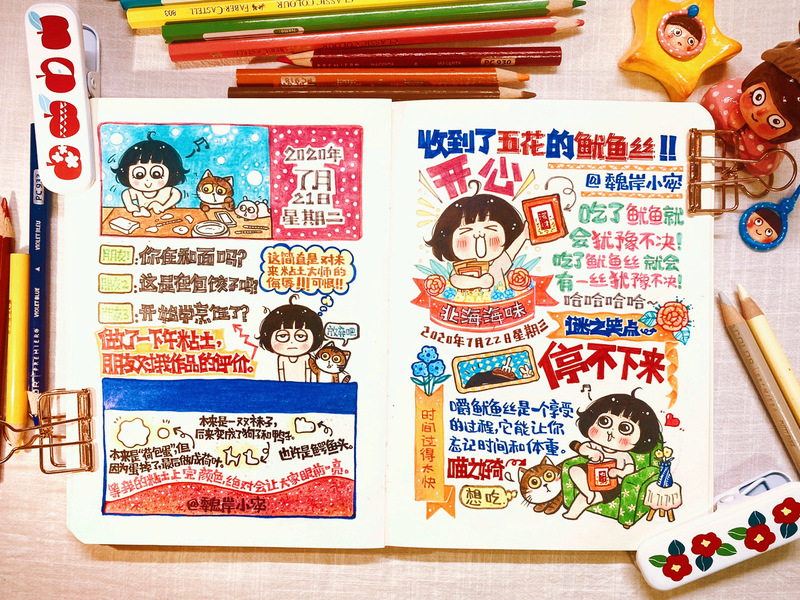 803 FABER-CASTELL CLASSIC COLOUR
PC 930
PREMIER
VIOLET BLUE
2020年
7月
21日
星期二
朋友1:你在和面吗?
朋友2:这是在包饺子吗?
朋友3:开始学烹饪了?
这简直是对未
来粘土大师的
侮辱!!!可恨!!
做了一下午粘土,
朋友对我作品的评价。
放弃吧
本来是一双袜子,
后来变成了狗子和鸭子.
本来是"荷包蛋",但
因为蛋掉了,最后做成荷叶.
也许是鳄鱼头.
等我的粘土上完颜色,绝对会让大家眼前一亮。
@彝岸小宓
收到了五花的鱿鱼丝!!
开心
@彝岸小宓
吃了鱿鱼就
会犹豫不决!
吃了鱿鱼丝就会
有一丝犹豫不决!
哈哈哈哈~
谜之笑点
停不下来
北海海味
2020年7月22日星期三
时间过得太快
嚼鱿鱼丝是一个享受
的过程,它能让你
忘记时间和体重。
喵之好奇
想吃